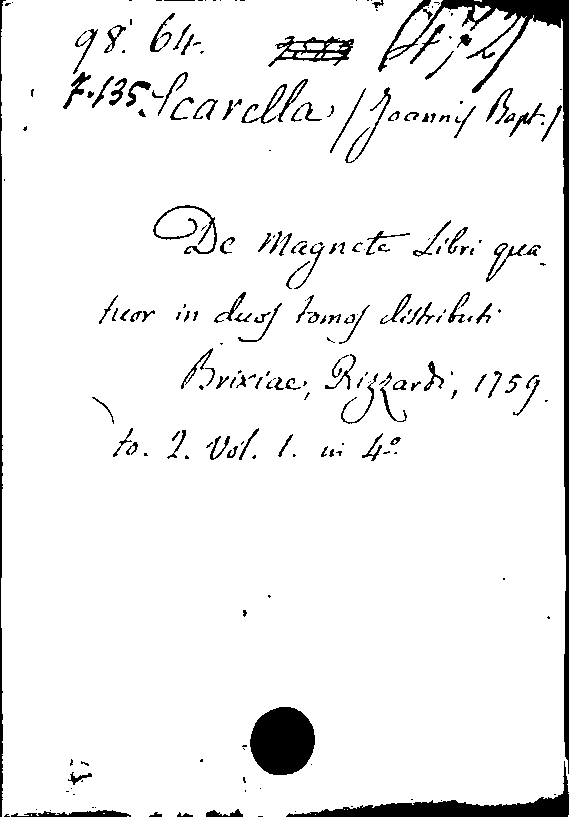 98. 64. (472)
7.135. Scarella /Joannis Bapt./
De Magnete Libri qua-
tuor in duos tomos distributi
Brixiae, Rizzardi, 1759.
to. 2. Vol. 1. in 4º